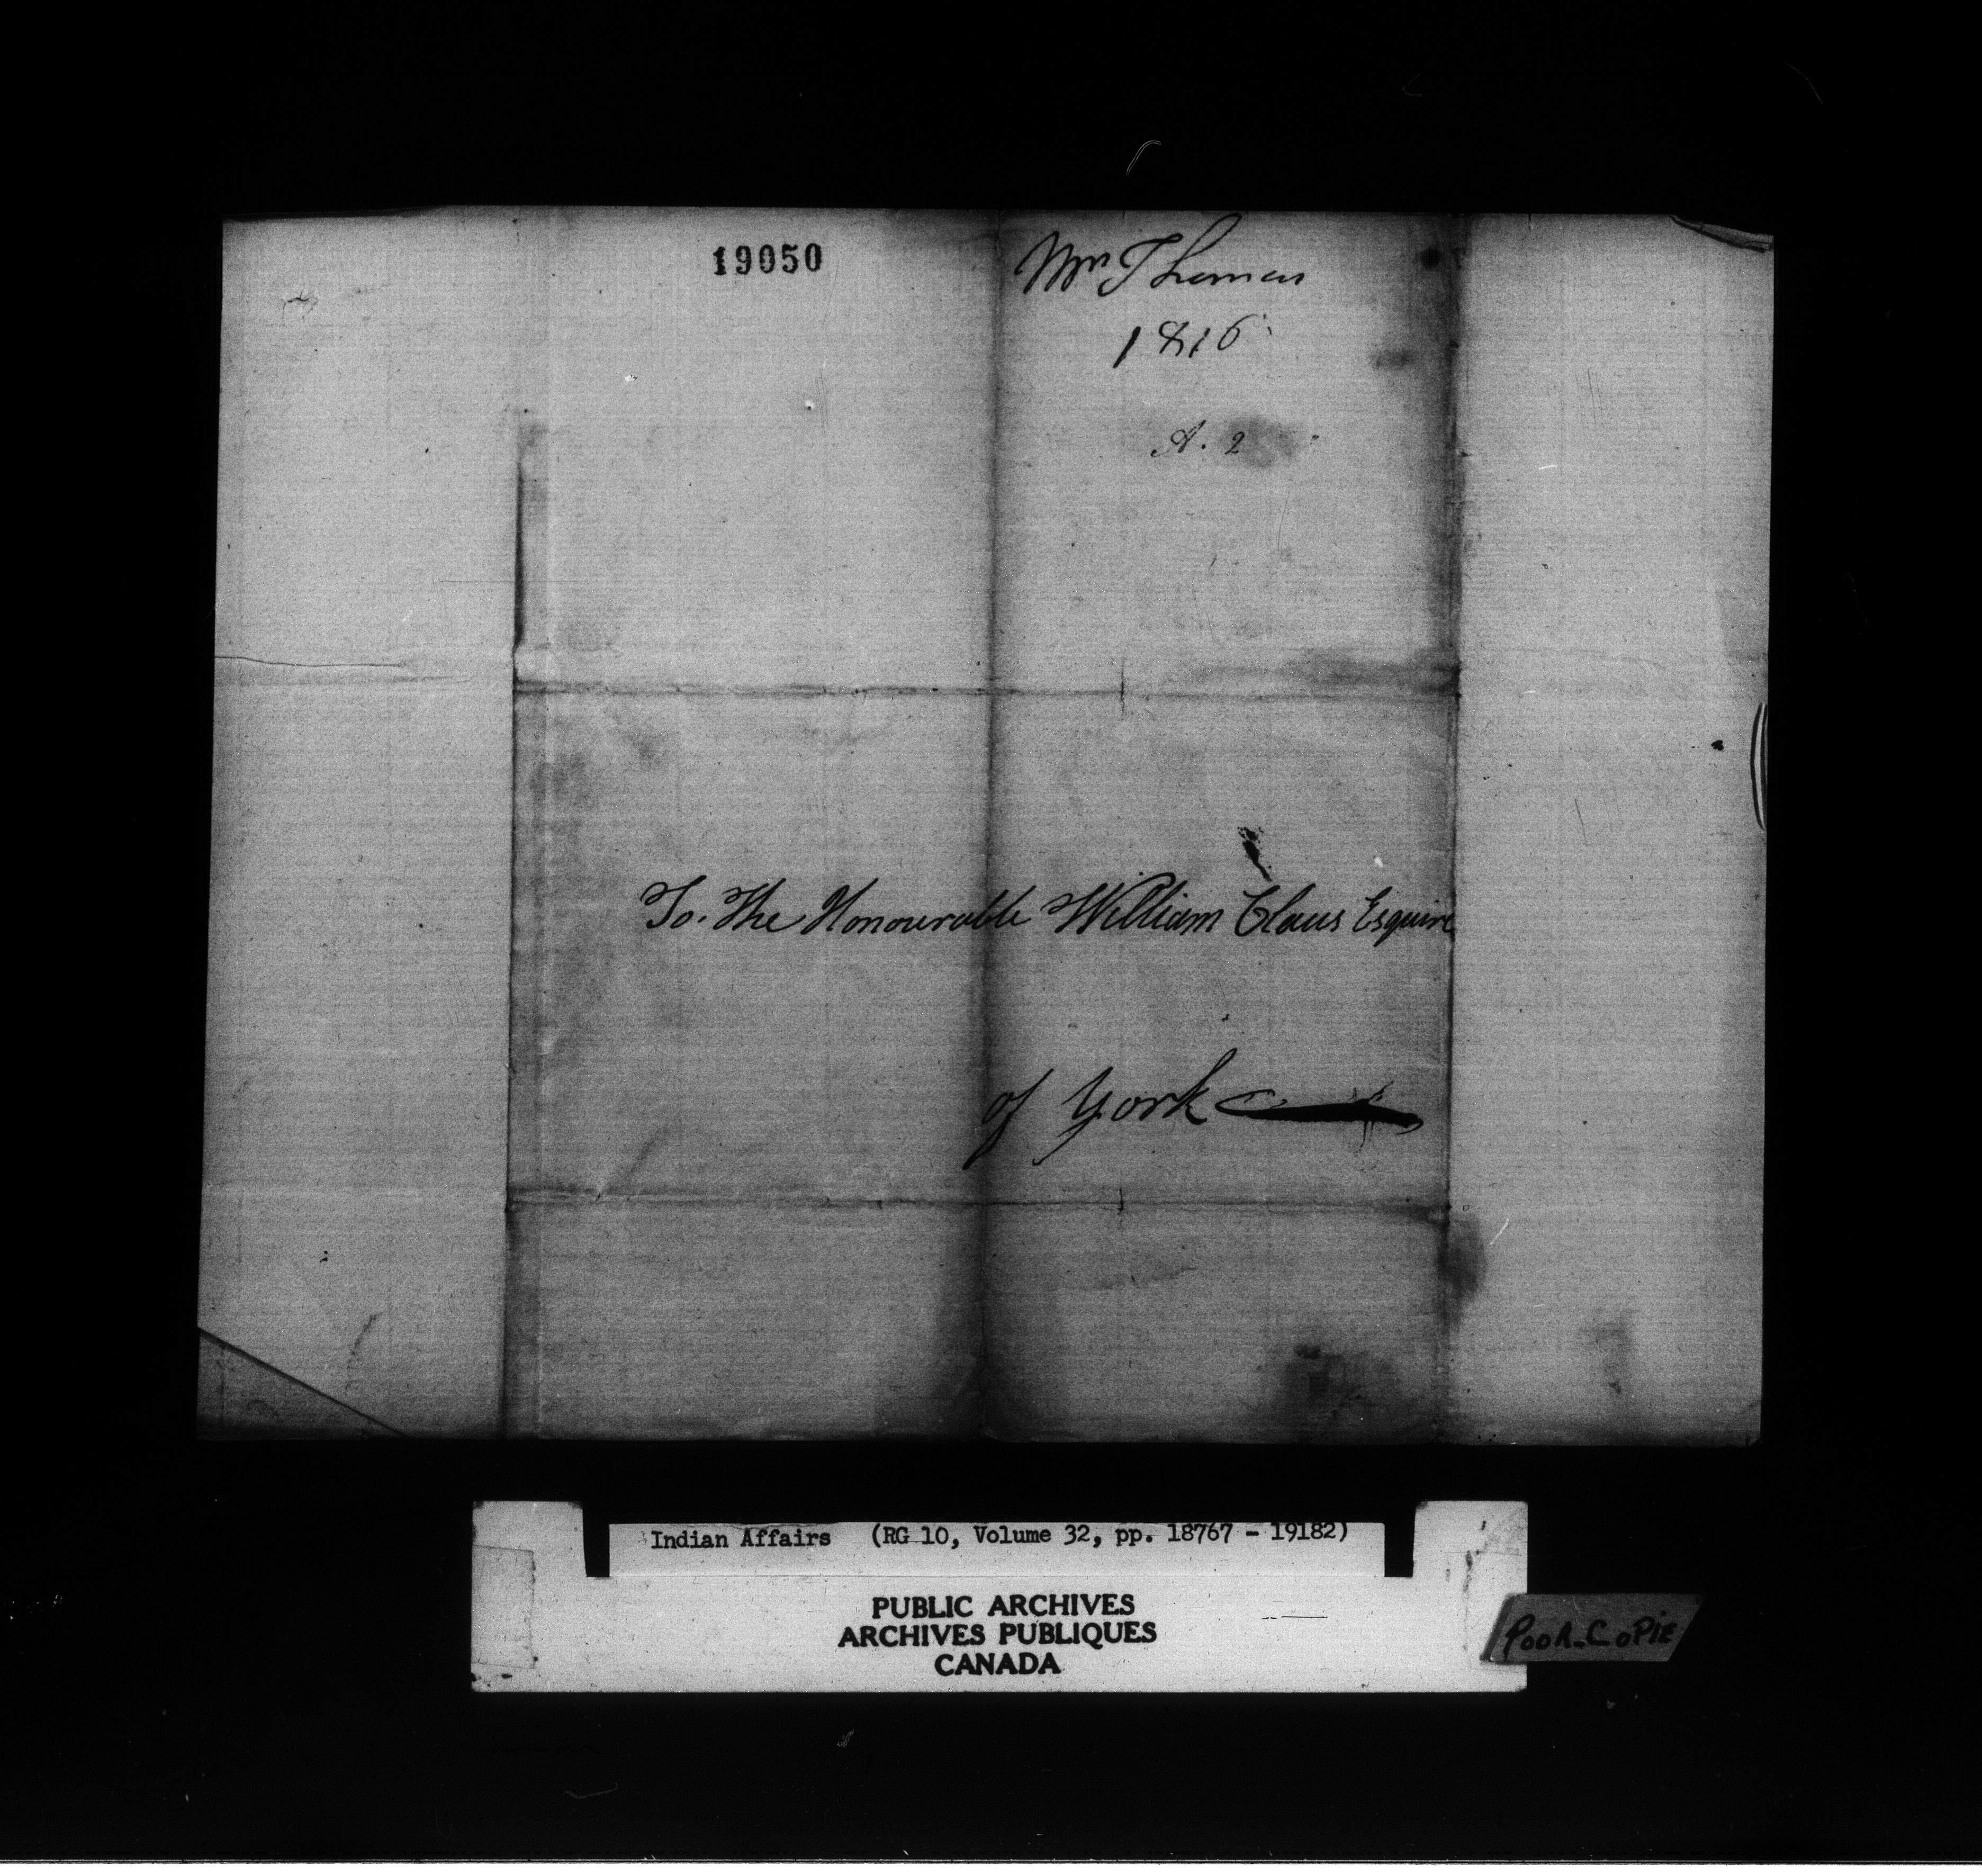 19050
Wm Thomas
1816
A. 2
To. The Honourable William Claus Esquire
of York
Indian Affairs (RG 10, Volume 32, pp. 18767 - 19182)
PUBLIC ARCHIVES
ARCHIVES PUBLIQUES
CANADA
POOR COPIE